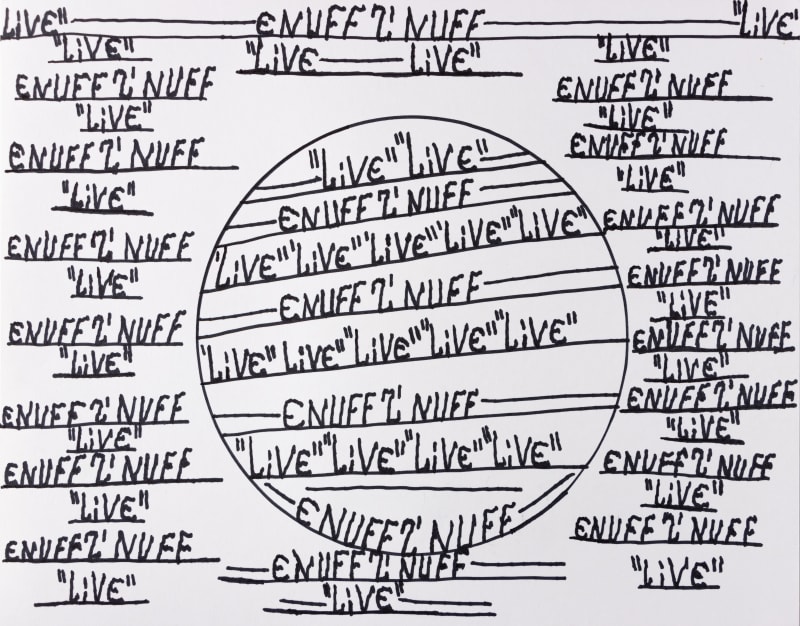 "LiVE" ENUFF Z' NUFF "LiVE"
"LiVE"
ENUFF Z' NUFF
"LiVE"
ENUFF Z' NUFF
"LiVE"
ENUFF Z' NUFF
"LiVE"
ENUFF Z' NUFF
"LiVE"
ENUFF Z' NUFF
"LiVE"
ENUFF Z' NUFF
"LiVE"
ENUFF Z' NUFF
"LiVE"
"LiVE LiVE"
"LiVE" "LiVE"
ENUFF Z' NUFF
"LiVE" "LiVE" "LiVE" "LiVE" "LiVE"
ENUFF Z' NUFF
"LiVE" "LiVE" "LiVE" "LiVE" "LiVE"
ENUFF Z' NUFF
"LiVE" "LiVE" "LiVE" "LiVE"
ENUFF Z' NUFF
ENUFF Z' NUFF
"LiVE"
"LiVE"
ENUFF Z' NUFF
"LiVE"
ENUFF Z' NUFF
"LiVE"
ENUFF Z' NUFF
"LiVE"
ENUFF Z' NUFF
"LiVE"
ENUFF Z' NUFF
"LiVE"
ENUFF Z' NUFF
"LiVE"
ENUFF Z' NUFF
"LiVE"
ENUFF Z' NUFF
"LiVE"